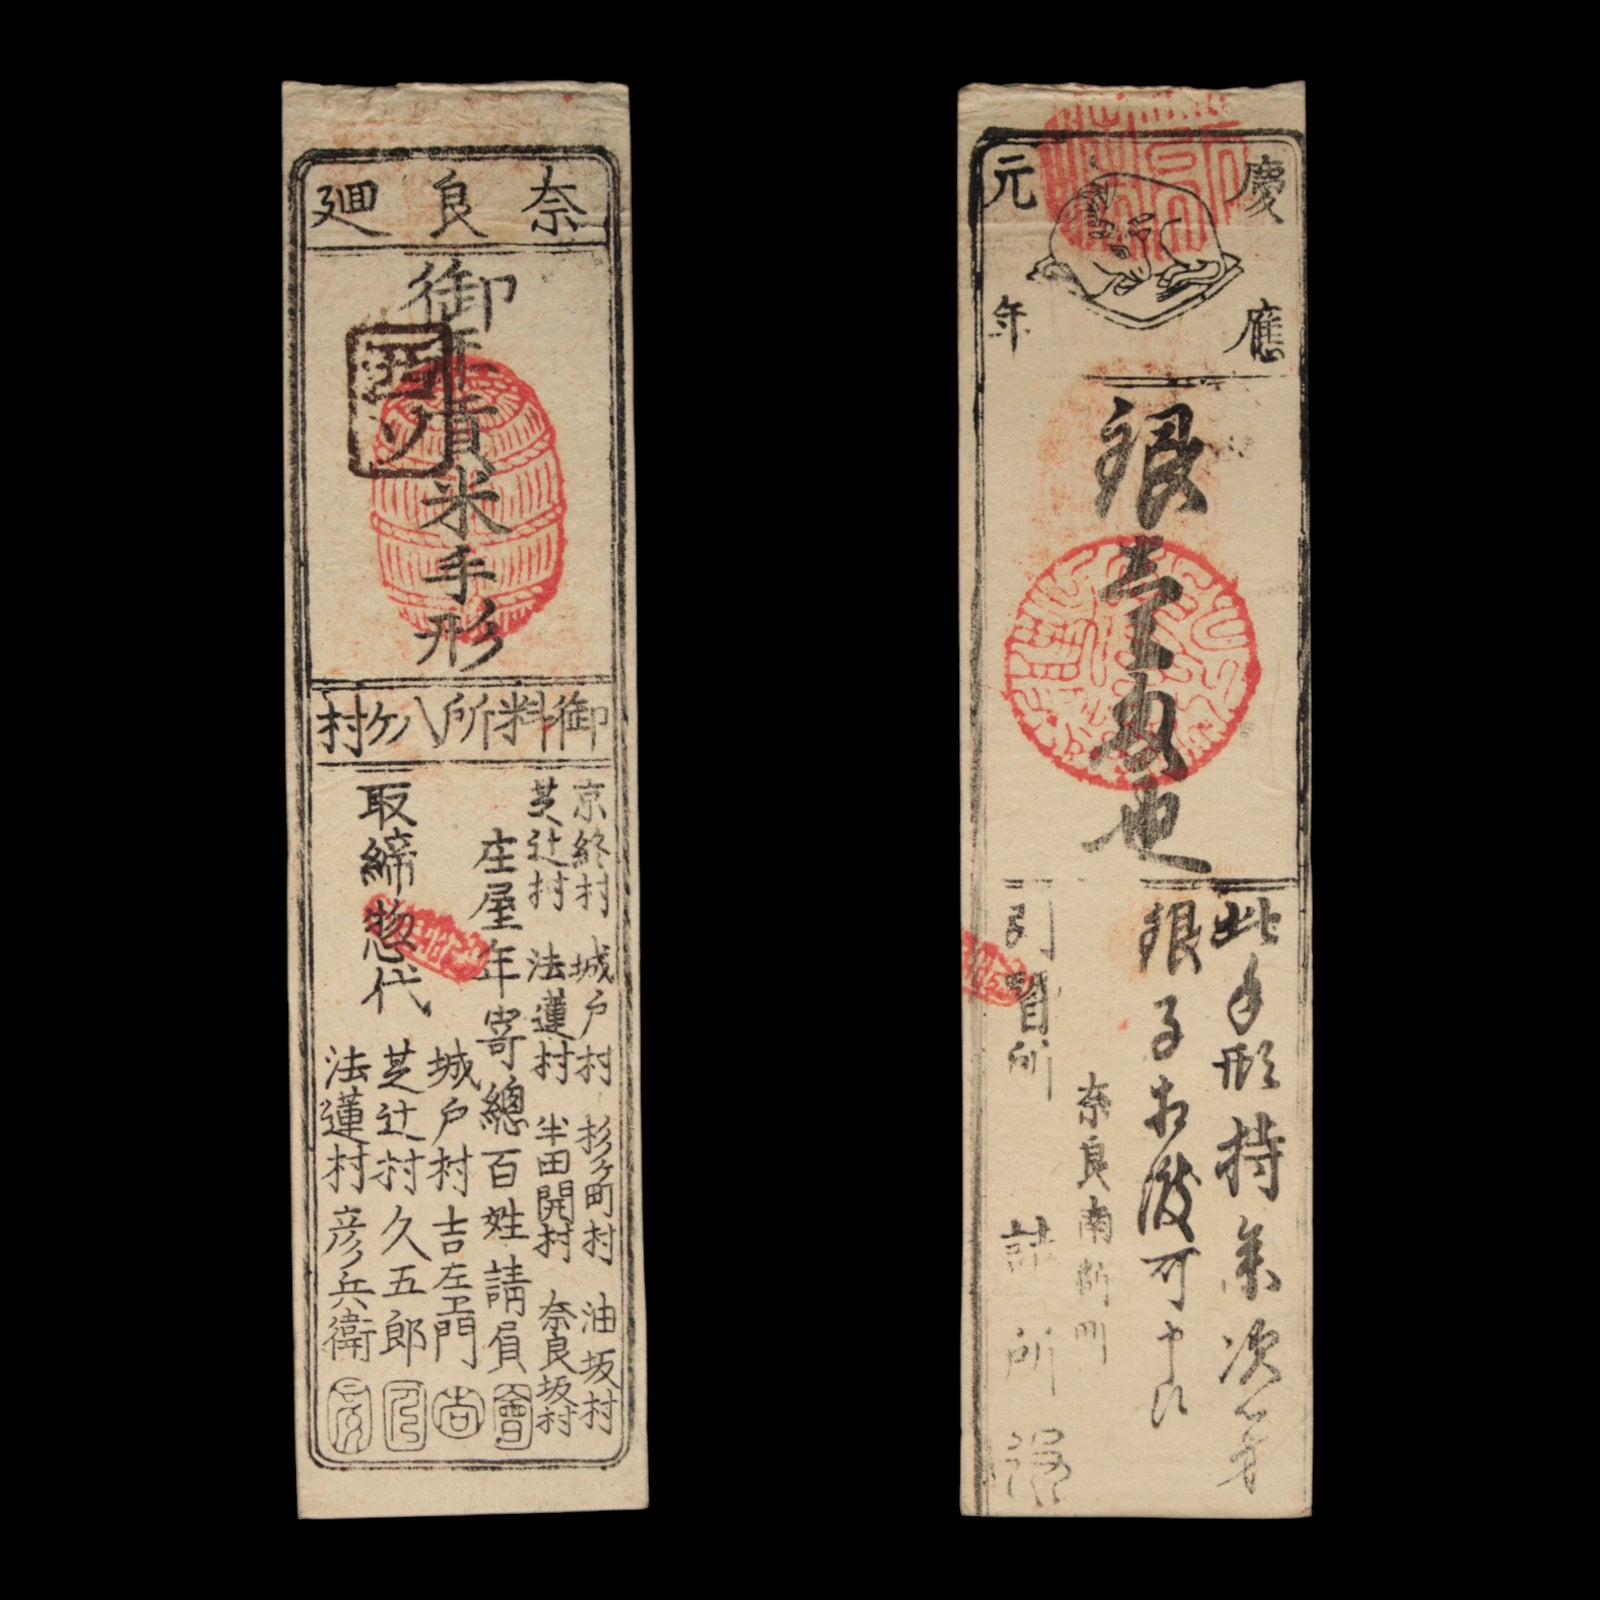 奈良廻
御年貢米手形
西ソ
御料所八ケ村
京終村 城戸村 杉ヶ町村 油坂村
芝辻村 法蓮村 半田開村 奈良坂村
庄屋年寄總百姓請負
取締惣代
城戸村吉左衛門
芝辻村久五郎
法蓮村彦兵衛
慶應
元年
銀壹匁也
此手形持参次第
銀子相渡可申候
奈良南
引替所
詰所